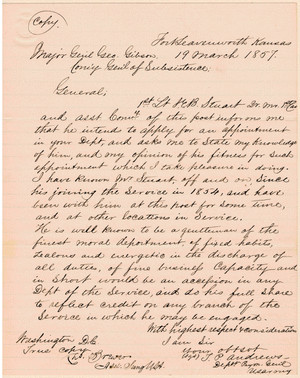 Copy.
Fort Leavenworth Kansas
19 March 1857.
Major Genl Geo. Gibson
Com'y Genl of Subsistence;
General;
1st Lt J.E.B. Stuart
and asst Com'y of this post informs me
that he intends to apply for an appointment
in your Dept, and asks me to state my Knowledge
of him, and my opinion of his fitness for such
appointment which I take pleasure in doing.
I have Known Mr Stuart off and on since
his joining the Service in 1854, and have
been with him at this post for some time,
and at other locations in Service.
He is well known to be a gentleman of the
finest moral deportment, of fixed habits,
zealous and energetic in the discharge of
all duties, of fine business Capacity and
in short would be an accession in any
Dept of the Service, and do his full share
to reflect credit on any branch of the
Service in which he may be engaged.
With highest respect & consideration
I am Sir
Your obt svt
T. P. Andrews
Dept Pay Genl
US army
Washington D.C.
True copy